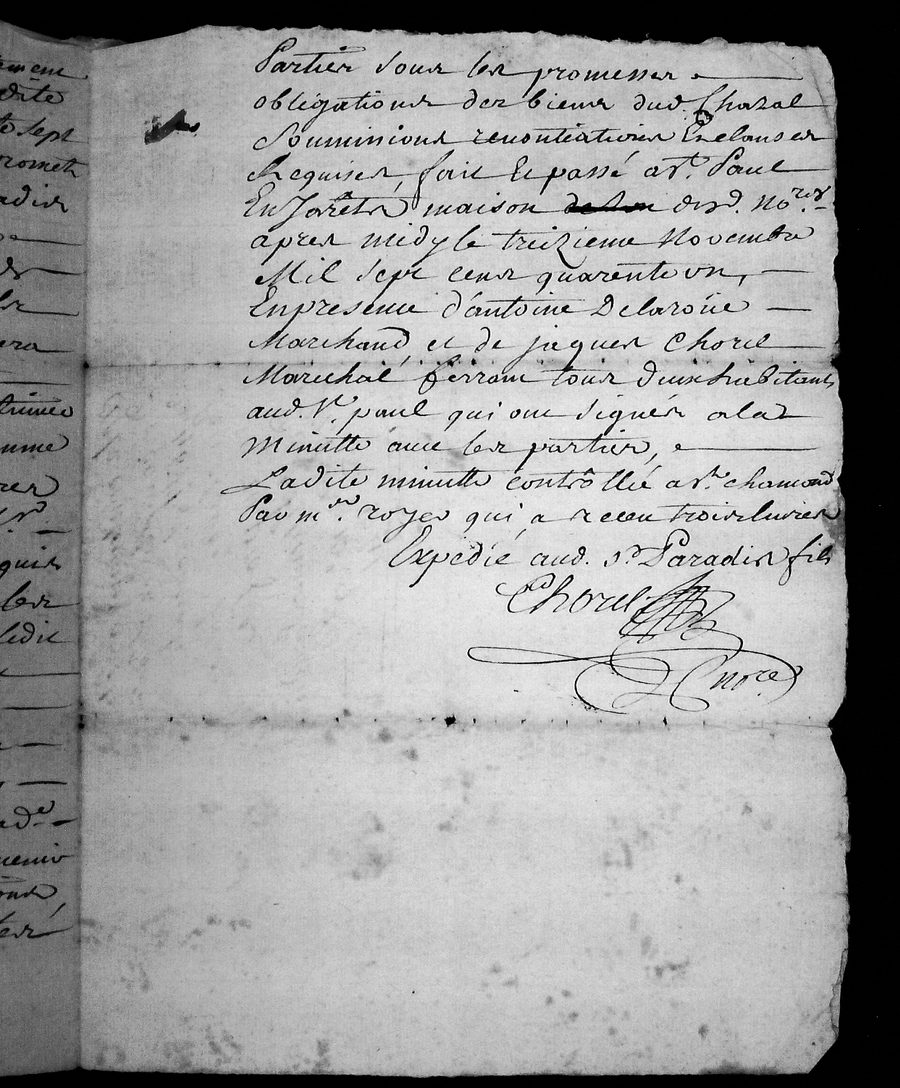 ement
dite
te sept
promet
adis
era
umme
res
Sr
quis
les
ledit
ade
Parties sous les promesses
obligations des biens dud. Chazal
souminions renontiations Et clauses
Requises, fait Et passé a St. Paul
En Jarêts, maison de son dud. no.re
apres midy le treizieme novembre
Mil sept cens quarente un,
En presence d'antoine Delaroüe
Marchand, et de jaques Chorel
Marechal ferrant tous deux habitants
aud. St. paul qui ont signés a la
minutte avec les parties,
Ladite minutte contrôllée a St. chamond
Par me. royer qui a receu trois livres
Expedié aud. Sr Paradis fils
Chorel
nore